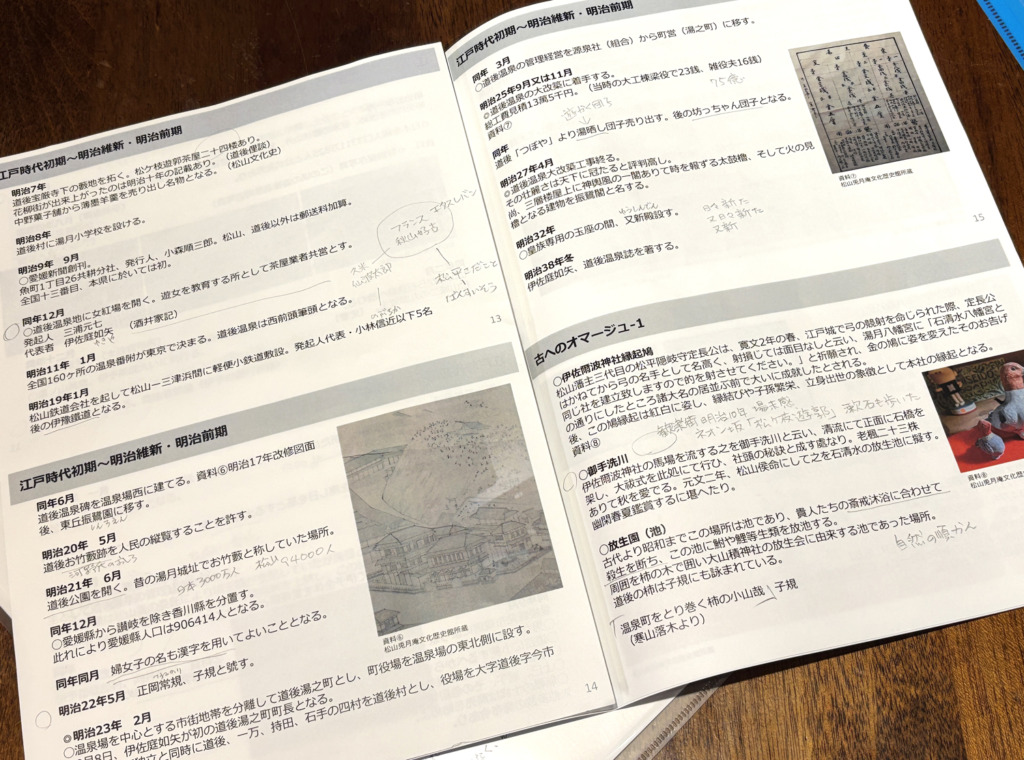 江戸時代初期～明治維新・明治前期
明治7年
道後宝厳寺下の藪地を拓く。松ケ枝遊郭茶屋二十四楼あり。
花柳街が出来上がったのは明治十年の記載あり。（道後俚談）
中野菓子舗から薄墨羊羹を売り出し名物となる。（松山文化史）
明治8年
道後村に湯月小学校を設ける。
明治9年 9月
○愛媛新聞創刊。
魚町1丁目26共耕分社、発行人、小森順三郎。松山、道後以外は郵送料加算。
全国十三番目、本県に於いては初。
同年12月
○道後温泉地に女紅場を開く。遊女を教育する所として茶屋業者共営とす。
発起人 三浦元七
代表者 伊佐庭如矢 （酒井家記）
明治11年 1月
全国160ヶ所の温泉番附が東京で決まる。道後温泉は西前頭筆頭となる。
明治19年1月
松山鉄道会社を起して松山ー三津浜間に軽便小鉄道敷設。発起人代表・小林信近以下5名
後の伊豫鐵道となる。
フランス
秋山好古
13
江戸時代初期～明治維新・明治前期
同年6月
道後温泉碑を温泉場西に建てる。資料⑥明治17年改修図面
後、東丘振鷺園に移す。
しんろえん
明治20年 5月
道後お竹藪跡を人民の縦覧することを許す。
明治21年 6月
道後公園を開く。昔の湯月城址でお竹藪と称していた場所。
日本3000万人 松山94000人
同年12月
○愛媛県から讃岐を除き香川縣を分置す。
此れにより愛媛県人口は906414人となる。
同年同月 婦女子の名も漢字を用いてよいこととなる。
明治22年5月 正岡常規、子規と號す。
◎明治23年 2月
○温泉場を中心とする市街地帯を分離して道後湯之町とし、町役場を温泉場の東北側に設す。
月8日、伊佐庭如矢が初の道後湯之町町長となる。
独立と同時に道後、一万、持田、石手の四村を道後村とし、役場を大字道後字今市
資料⑥
松山兎月庵文化歴史館所蔵
14
江戸時代初期～明治維新・明治前期
同年 3月
○道後温泉の管理経営を源泉社（組合）から町営（湯之町）に移す。
明治25年9月又は11月
◎道後温泉の大改築に着手する。
総工費見積13万5千円。（当時の大工棟梁役で23銭、雑役夫16銭）
資料⑦
75億
同年
道後「つぼや」より湯晒し団子売り出す。後の坊っちゃん団子となる。
明治27年4月
◎道後温泉大改築工事終る。
その壮麗さは天下に冠たると評判高し。
尚、三層楼屋上に神輿風の一閣ありて時を報する太鼓櫓、そして火の見
櫓となる建物を振鷺閣と名する。
ゆうしんでん
明治32年
○皇族専用の玉座の間、又新殿設す。
日々新た
又日々新た
又新
明治38年冬
伊佐庭如矢、道後温泉誌を著する。
資料⑦
松山兎月庵文化歴史館所蔵
15
古へのオマージユ-1
○伊佐爾波神社縁起鳩
松山藩主三代目の松平隠岐守定長公は、寛文2年の春、江戸城で弓の競射を命じられた際、定長公
はかねてから弓の名手として名高く、射損しては面目なしと云い、湯月八幡宮に「石清水八幡宮と
同じ社を建立致しますので的を射させてください。」と祈願され、金の鳩に姿を変えたそのお告げ
の通りにしたところ諸大名の居並ぶ前で大いに成就したとされる。
後、この鳩縁起は紅白に姿し、縁結びや子孫繁栄、立身出世の象徴として本社の縁起となる。
資料⑧
ネオン坂「松ヶ枝遊郭」 漱石も歩いた
○御手洗川
伊佐爾波神社の馬場を流する之を御手洗川と云い、清流にて正面に石橋を
架し、大祓式を此処にて行ひ、社頭の秘訣と成す處なり。老楓二十三株
ありて秋を愛でる。元文二年、松山侯命にして之を石清水の放生池に擬す。
幽閑春夏鑑賞するに堪へたり。
○放生園（池）
古代より昭和までこの場所は池であり、貴人たちの斎戒沐浴に合わせて
殺生を断ち、この池に鮒や鯉等生類を放池する。
周囲を柿の木で囲い大山積神社の放生会に由来する池であった場所。
道後の柿は子規にも詠まれている。
温泉町をとり巻く柿の小山哉 子規
（寒山落木より）
資料⑧
松山兎月庵文化歴史館所蔵